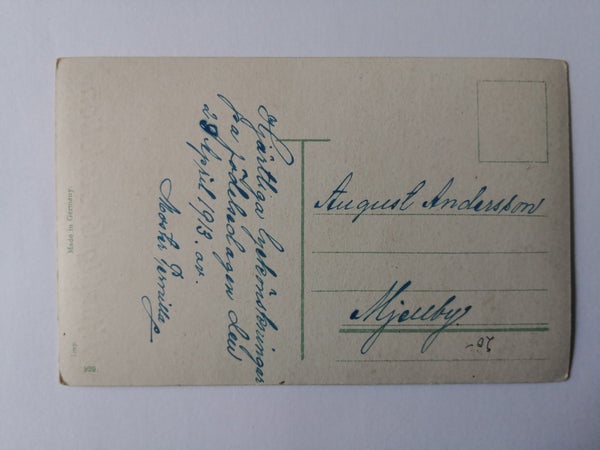 Hjärtliga lyckönskningar
på födelsedagen den
29 April 1913. av.
Moster Pernilla
August Andersson
Mjellby.
20-
Made in Germany.
Imp.
999.